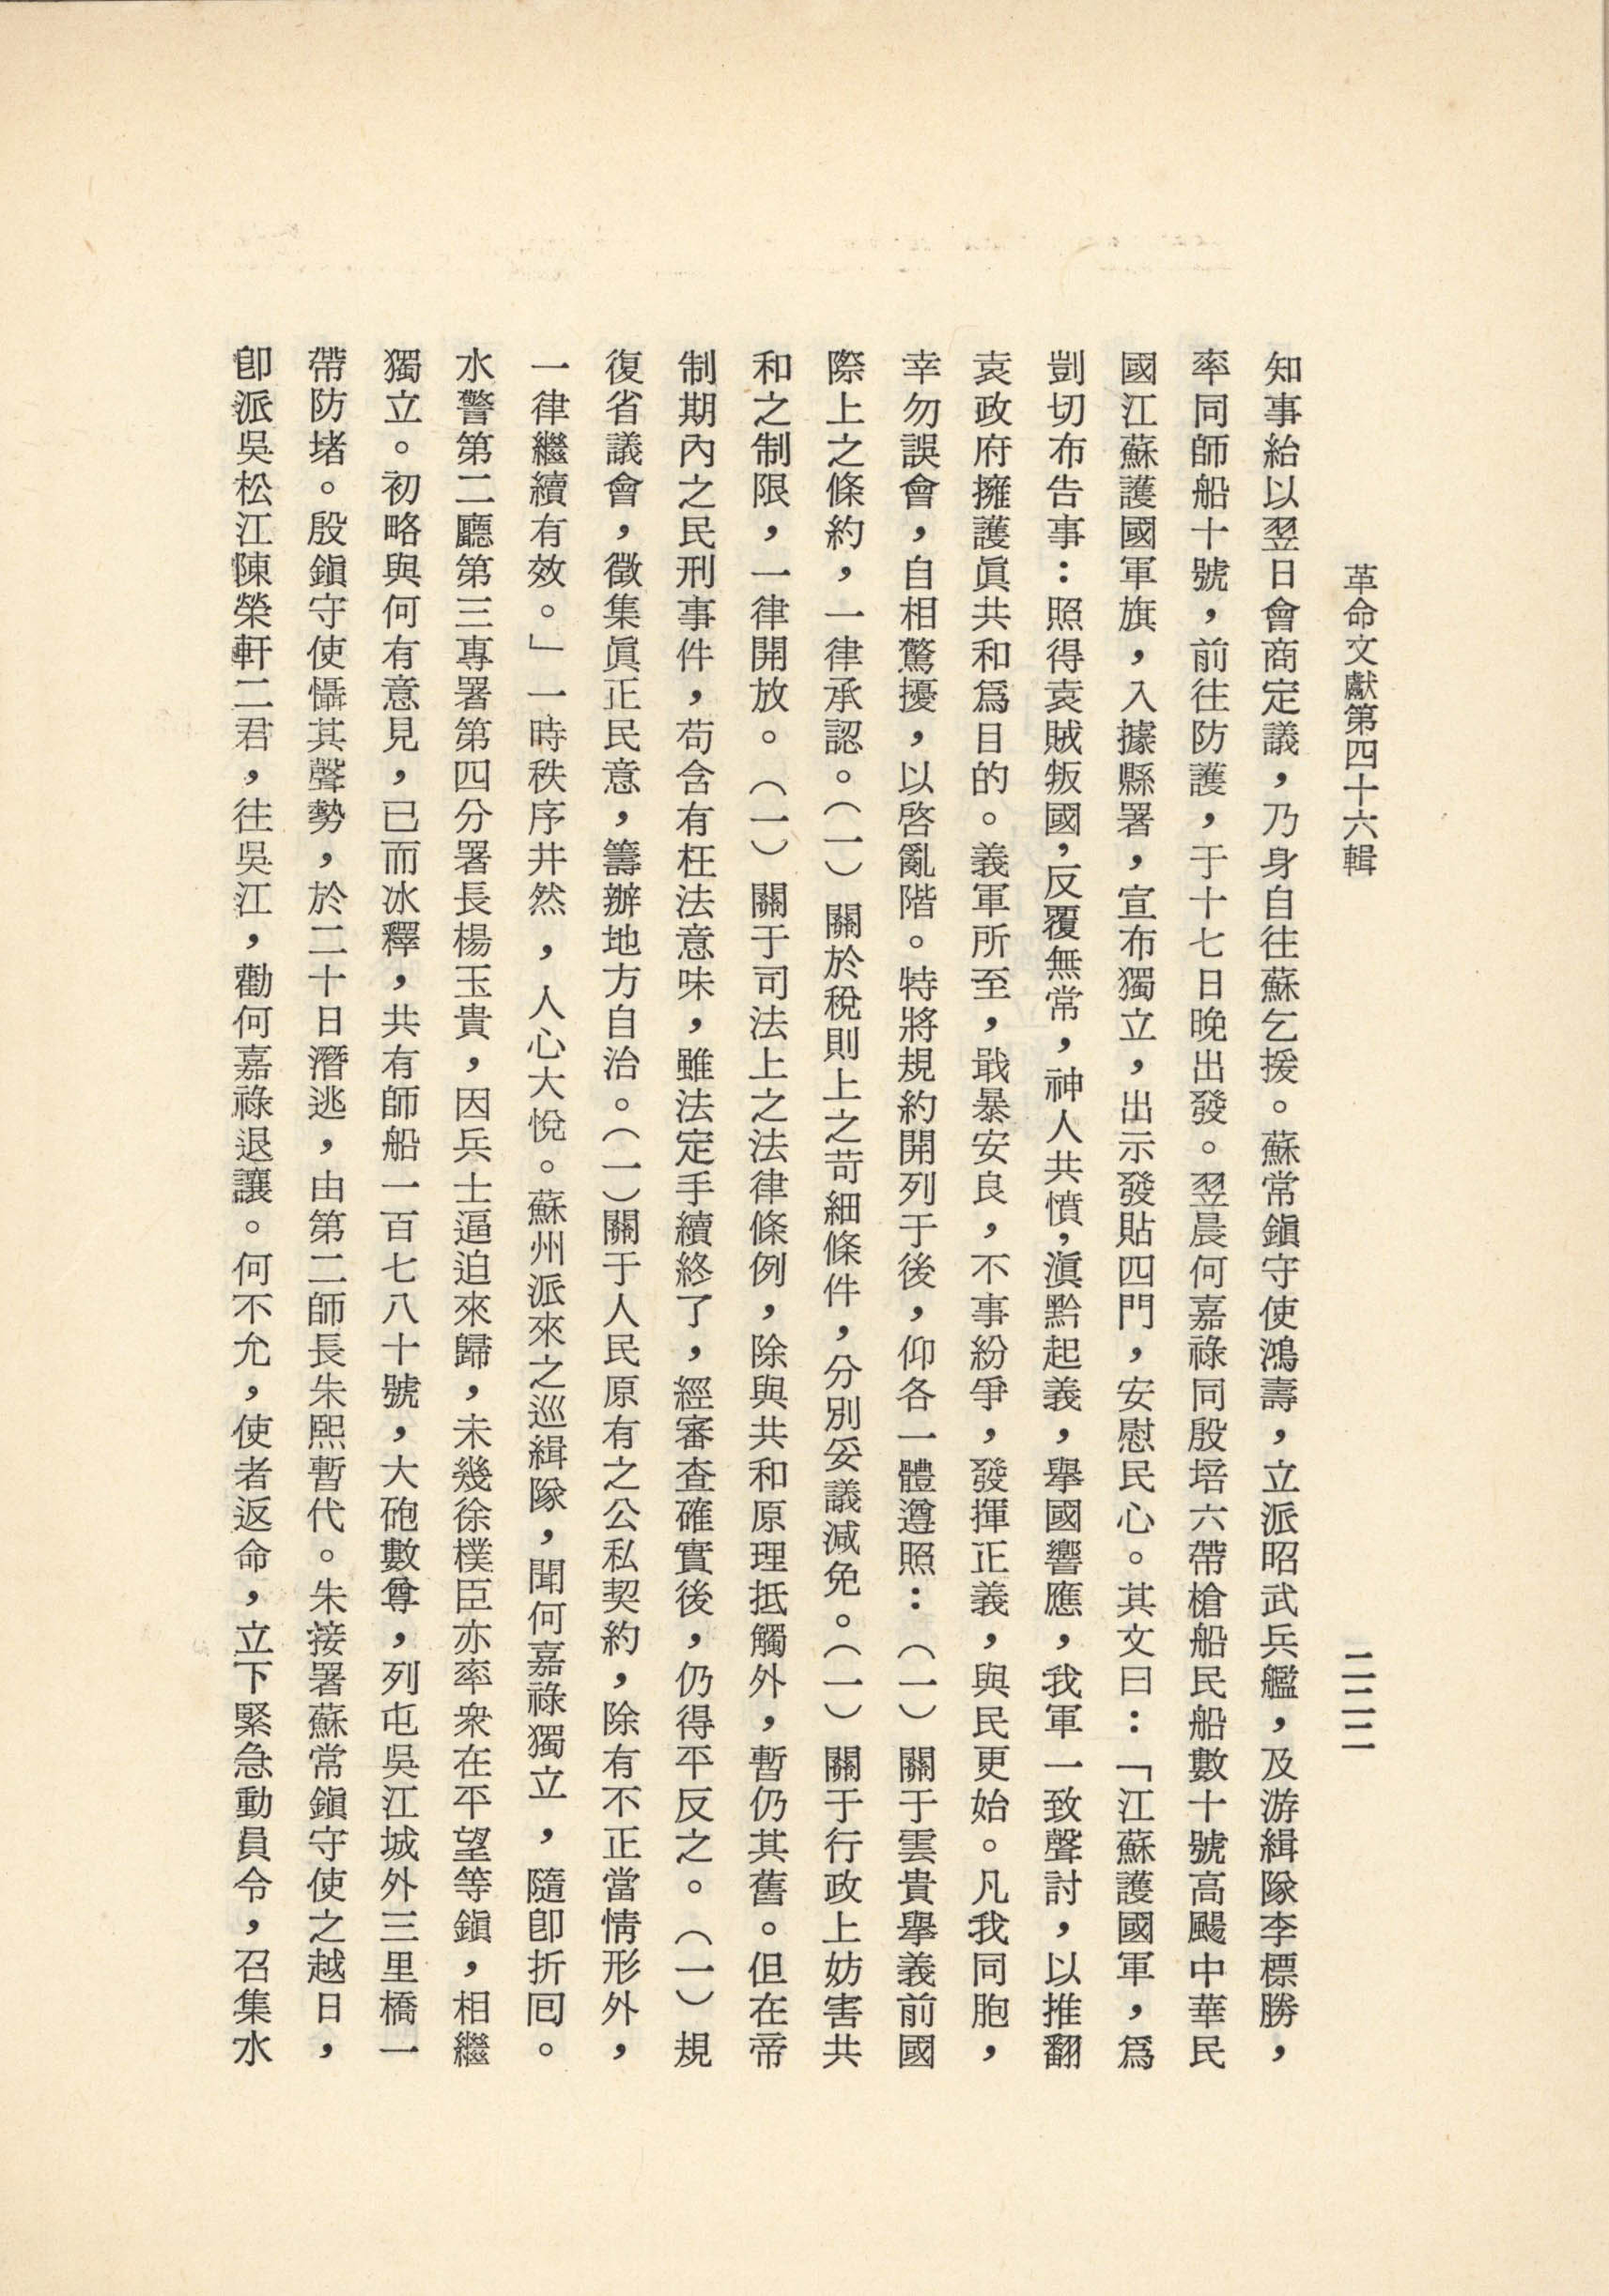 革命文獻第四十六輯
二二二
知事紿以翌日會商定議，乃身自往蘇乞援。蘇常鎭守使鴻壽，立派昭武兵艦，及游緝隊李標勝，
率同師船十號，前往防護，于十七日晚出發。翌晨何嘉祿同殷培六帶槍船民船數十號高颺中華民
國江蘇護國軍旗，入據縣署，宣布獨立，出示發貼四門，安慰民心。其文曰：「江蘇護國軍，爲
剴切布告事：照得袁賊叛國，反覆無常，神人共憤，滇黔起義，舉國響應，我軍一致聲討，以推翻
袁政府擁護眞共和爲目的。義軍所至，戢暴安良，不事紛爭，發揮正義，與民更始。凡我同胞，
幸勿誤會，自相驚擾，以啓亂階。特將規約開列于後，仰各一體遵照：（一）關于雲貴舉義前國
際上之條約，一律承認。（一）關於稅則上之苛細條件，分別妥議減免。（一）關于行政上妨害共
和之制限，一律開放。（一）關于司法上之法律條例，除與共和原理抵觸外，暫仍其舊。但在帝
制期內之民刑事件，苟含有枉法意味，雖法定手續終了，經審查確實後，仍得平反之。（一）規
復省議會，徵集眞正民意，籌辦地方自治。（一）關于人民原有之公私契約，除有不正當情形外，
一律繼續有效。」一時秩序井然，人心大悅。蘇州派來之巡緝隊，聞何嘉祿獨立，隨卽折囘。
水警第二廳第三專署第四分署長楊玉貴，因兵士逼迫來歸，未幾徐樸臣亦率衆在平望等鎭，相繼
獨立。初略與何有意見，已而冰釋，共有師船一百七八十號，大砲數尊，列屯吳江城外三里橋一
帶防堵。殷鎭守使懾其聲勢，於二十日潛逃，由第二師長朱熙暫代。朱接署蘇常鎭守使之越日，
卽派吳松江陳榮軒二君，往吳江，勸何嘉祿退讓。何不允，使者返命，立下緊急動員令，召集水